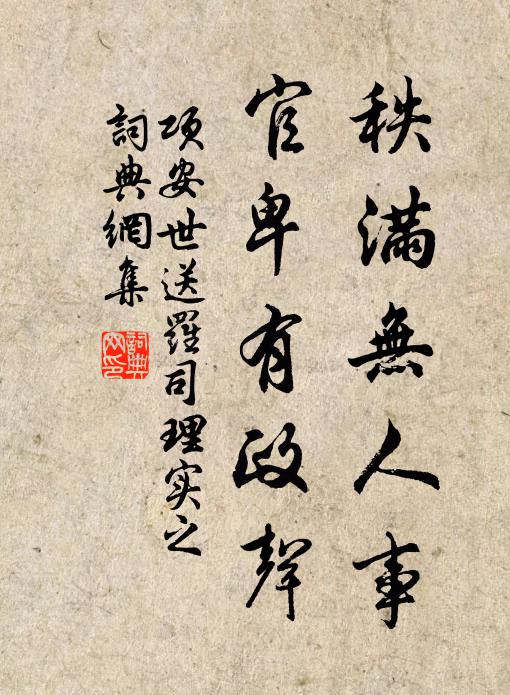 秩滿無人事
官卑有政聲
项安世送羅司理实之
詞典網集
詞典網印